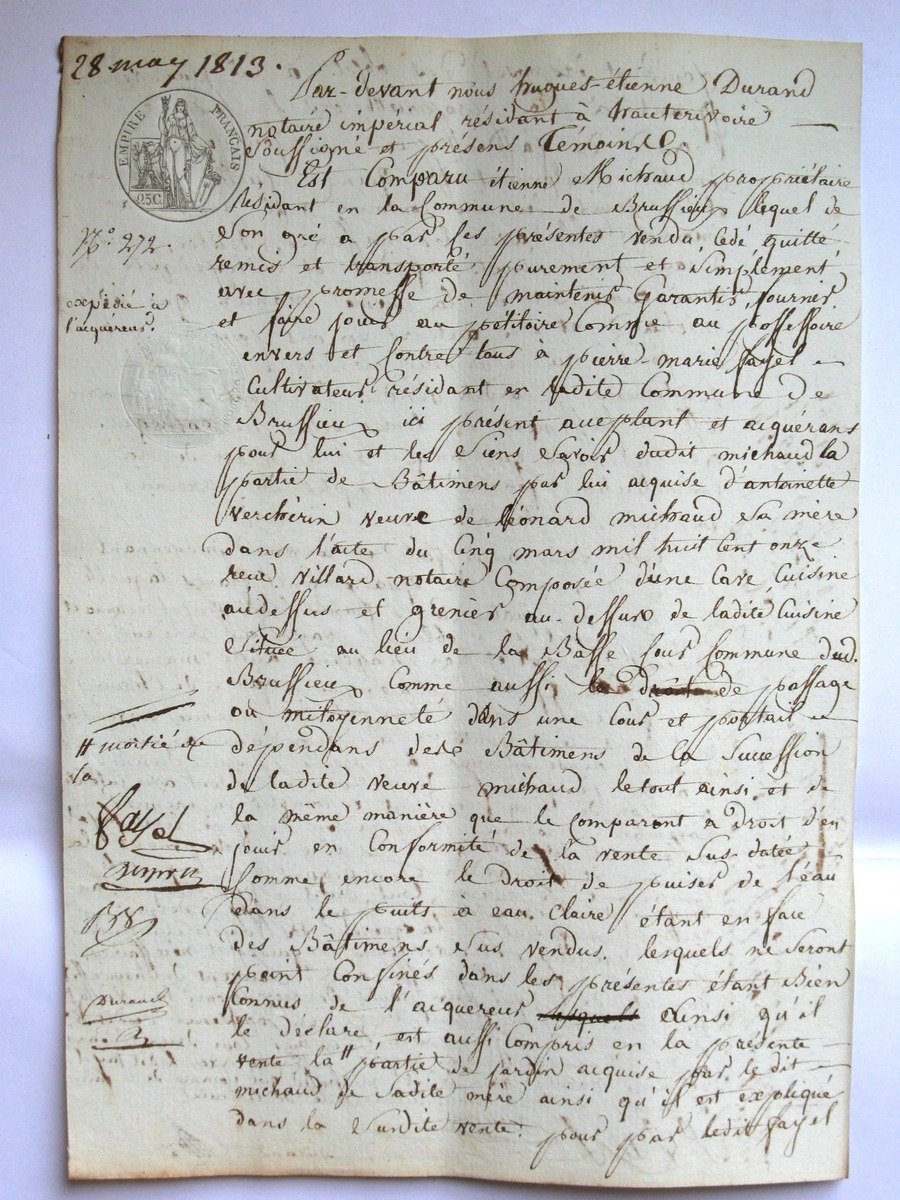 28 may 1813.
Par-devant nous hugues-étienne Durand
notaire impérial résidant à hauterivoire
soussigné et présens Témoins
EMPIRE FRANÇAIS
25C
Est Comparu étienne Michaud propriétaire
Résidant en la Commune de Brussieux lequel de
son gré a par ses présentes vendu cédé quitté
N° 272.
remis et transporté purement et simplement
avec promesse de maintenir Garantir, fournir
expédié à
l'acquéreur
et faire jouir au pétitoire Comme au possessoire
envers et Contre tous à pierre-marie fayel
Cultivateur résidant en ladite Commune de
Brussieux ici présent acceptant et acquérant
pour lui et les Siens Savoir dudit michaud la
partie de Bâtimens par lui acquise d'antoinette
Verchérin veuve de léonard michaud sa mère
dans l'acte du Cinq mars mil huit Cent onze
reçu Villard notaire Composée d'une Cave Cuisine
audessus et grenier au-dessus de ladite Cuisine
Située au lieu de la Basse Cour Commune dud.
Brussieux Comme aussi le droit de passage
ou mitoyenneté dans une Cour et portail
dépendans des Bâtimens de la Succession
# moitié de
la
de ladite veuve michaud le tout ainsi et de
la même manière que le Comparant a Droit d'en
fayel
jouir en Conformité de la vente Sus-datée
Comme encore le Droit de puiser de l'eau
dans le puits à eau Claire étant en face
des Bâtimens Sus vendus. lesquels ne Seront
point Confinés dans les présentes étant Bien
Durand
Connus de l'acquereur lesquels ainsi qu'il
le déclare, est aussi Compris en la présente
vente la # partie de jardin acquise par le dit
michaud de Sadite mère ainsi qu'il est expliqué
dans la Susdite vente. pour par ledit fayel